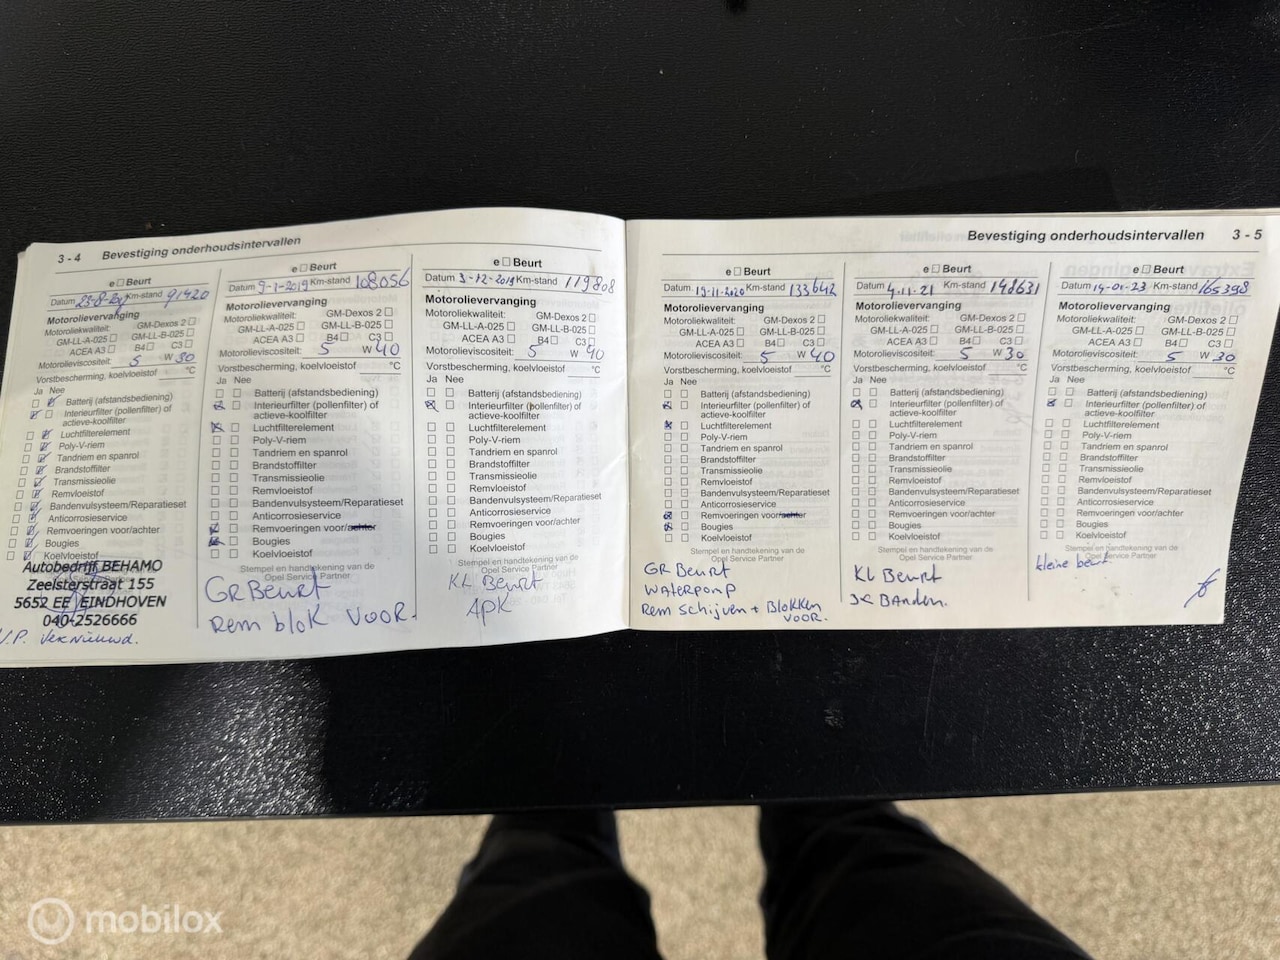 3 - 4 Bevestiging onderhoudsintervallen
e □ Beurt
Datum Km-stand 91420
Motorolievervanging
Motoroliekwaliteit: GM-Dexos 2 □
GM-LL-A-025 □ GM-LL-B-025 □
ACEA A3 □ B4 □ C3 □
Motorolieviscositeit: 5 W 30
Vorstbescherming, koelvloeistof °C
Ja Nee
Batterij (afstandsbediening)
Interieurfilter (pollenfilter) of
actieve-koolfilter
Luchtfilterelement
Poly-V-riem
Tandriem en spanrol
Brandstoffilter
Transmissieolie
Remvloeistof
Bandenvulsysteem/Reparatieset
Anticorrosieservice
Remvoeringen voor/achter
Bougies
Koelvloeistof
Autobedrijf BEHAMO
Zeelsterstraat 155
5652 EE EINDHOVEN
040-2526666
Vernieuwd.
e □ Beurt
Datum 9-1-2019 Km-stand 108056
Motorolievervanging
Motoroliekwaliteit: GM-Dexos 2 □
GM-LL-A-025 □ GM-LL-B-025 □
ACEA A3 □ B4 □ C3 □
Motorolieviscositeit: 5 W 40
Vorstbescherming, koelvloeistof °C
Ja Nee
Batterij (afstandsbediening)
Interieurfilter (pollenfilter) of
actieve-koolfilter
Luchtfilterelement
Poly-V-riem
Tandriem en spanrol
Brandstoffilter
Transmissieolie
Remvloeistof
Bandenvulsysteem/Reparatieset
Anticorrosieservice
Remvoeringen voor/achter
Bougies
Koelvloeistof
Stempel en handtekening van de
Opel Service Partner
GR Beurt
Rem blok VOOR.
e □ Beurt
Datum 3-12-2019 Km-stand 119808
Motorolievervanging
Motoroliekwaliteit: GM-Dexos 2 □
GM-LL-A-025 □ GM-LL-B-025 □
ACEA A3 □ B4 □ C3 □
Motorolieviscositeit: 5 W 40
Vorstbescherming, koelvloeistof °C
Ja Nee
Batterij (afstandsbediening)
Interieurfilter (pollenfilter) of
actieve-koolfilter
Luchtfilterelement
Poly-V-riem
Tandriem en spanrol
Brandstoffilter
Transmissieolie
Remvloeistof
Bandenvulsysteem/Reparatieset
Anticorrosieservice
Remvoeringen voor/achter
Bougies
Koelvloeistof
Stempel en handtekening van de
Opel Service Partner
KL Beurt
APK
Bevestiging onderhoudsintervallen 3 - 5
e □ Beurt
Datum 19-11-2020 Km-stand 133642
Motorolievervanging
Motoroliekwaliteit: GM-Dexos 2 □
GM-LL-A-025 □ GM-LL-B-025 □
ACEA A3 □ B4 □ C3 □
Motorolieviscositeit: 5 W 40
Vorstbescherming, koelvloeistof °C
Ja Nee
Batterij (afstandsbediening)
Interieurfilter (pollenfilter) of
actieve-koolfilter
Luchtfilterelement
Poly-V-riem
Tandriem en spanrol
Brandstoffilter
Transmissieolie
Remvloeistof
Bandenvulsysteem/Reparatieset
Anticorrosieservice
Remvoeringen voor/achter
Bougies
Koelvloeistof
Stempel en handtekening van de
Opel Service Partner
GR Beurt
WATERPOMP
Rem schijven + Blokken
VOOR.
e □ Beurt
Datum 4.11.21 Km-stand 148631
Motorolievervanging
Motoroliekwaliteit: GM-Dexos 2 □
GM-LL-A-025 □ GM-LL-B-025 □
ACEA A3 □ B4 □ C3 □
Motorolieviscositeit: 5 W 30
Vorstbescherming, koelvloeistof °C
Ja Nee
Batterij (afstandsbediening)
Interieurfilter (pollenfilter) of
actieve-koolfilter
Luchtfilterelement
Poly-V-riem
Tandriem en spanrol
Brandstoffilter
Transmissieolie
Remvloeistof
Bandenvulsysteem/Reparatieset
Anticorrosieservice
Remvoeringen voor/achter
Bougies
Koelvloeistof
Stempel en handtekening van de
Opel Service Partner
KL Beurt
Banden.
e □ Beurt
Datum 14-01-23 Km-stand 165398
Motorolievervanging
Motoroliekwaliteit: GM-Dexos 2 □
GM-LL-A-025 □ GM-LL-B-025 □
ACEA A3 □ B4 □ C3 □
Motorolieviscositeit: 5 W 30
Vorstbescherming, koelvloeistof °C
Ja Nee
Batterij (afstandsbediening)
Interieurfilter (pollenfilter) of
actieve-koolfilter
Luchtfilterelement
Poly-V-riem
Tandriem en spanrol
Brandstoffilter
Transmissieolie
Remvloeistof
Bandenvulsysteem/Reparatieset
Anticorrosieservice
Remvoeringen voor/achter
Bougies
Koelvloeistof
Stempel en handtekening van de
Opel Service Partner
kleine beurt
mobilox